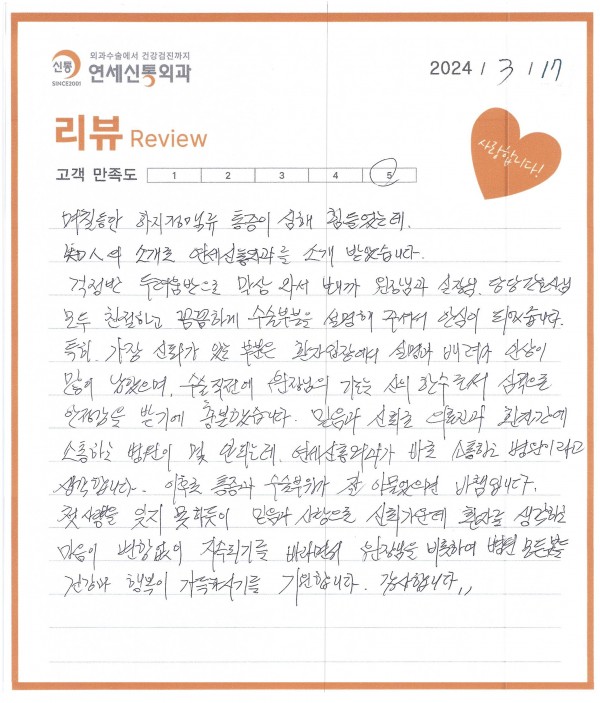 신통
SINCE2001
외과수술에서 건강검진까지
연세신통외과
2024 / 3 / 17
리뷰 Review
사랑합니다!
고객 만족도 1 2 3 4 5
며칠동안 하지정맥류 통증이 심해 힘들었는데.
知人의 소개로 연세신통외과를 소개 받았습니다.
걱정반 두려움반으로 막상 와서 보니까 원장님과 실장님, 담당간호사님
모두 친절하고 꼼꼼하게 수술부분을 설명해 주셔서 안심이 되었습니다.
특히. 가장 신뢰가 있는 부분은 환자입장에서 설명과 배려가 인상이
많이 남았으며, 수술직전에 원장님의 기도는 신의 한수로서 심적으로
안정감을 받기에 충분했습니다. 믿음과 신뢰로 의료진과 환자간에
소통하는 병원이 몇 안되는데, 연세신통외과가 바로 소통하는 병원이라고
생각합니다. 이후로 통증과 수술부위가 잘 아물었으면 바램입니다.
첫사랑을 잊지 못하듯이 믿음과 사랑으로 신뢰가운데 환자를 생각하는
마음이 변함없이 지속되기를 바라면서 원장님을 비롯하여 병원 모든분들
건강과 행복이 가득하시기를 기원합니다. 감사합니다,,